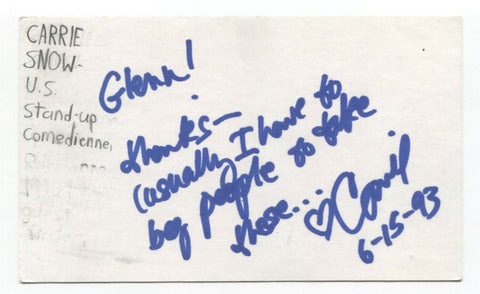 CARRIE
SNOW-
U.S.
Stand-up
Comedienne,
Glenn!
thanks—
(usually I have to
beg people to take
these...
♡ Carrie
6-15-93